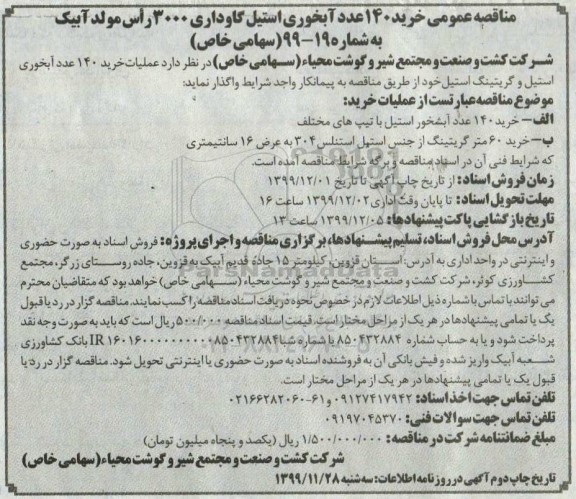 مناقصه عمومی خرید ۱۴۰ عدد آبخوری استیل گاوداری ۳۰۰۰ رأس مولد آبیک
به شماره ۱۹-۹۹ (سهامی خاص)
شرکت کشت و صنعت و مجتمع شیر و گوشت محیاء (سهامی خاص) در نظر دارد عملیات خرید ۱۴۰ عدد آبخوری
استیل و گریتینگ استیل خود از طریق مناقصه به پیمانکار واجد شرایط واگذار نماید:
موضوع مناقصه عبارتست از عملیات خرید:
الف- خرید ۱۴۰ عدد آبشخور استیل با تیپ های مختلف
ب- خرید ۶۰ متر گریتینگ از جنس استیل استنلس ۳۰۴ به عرض ۱۶ سانتیمتری
که شرایط فنی آن در اسناد مناقصه و برگه شرایط مناقصه آمده است.
زمان فروش اسناد: از تاریخ چاپ آگهی تا تاریخ ۱۳۹۹/۱۲/۰۱
مهلت تحویل اسناد: تا پایان وقت اداری ۱۳۹۹/۱۲/۰۲ ساعت ۱۶
تاریخ بازگشایی پاکت پیشنهادها: ۱۳۹۹/۱۲/۰۵ ساعت ۱۳
آدرس محل فروش اسناد، تسلیم پیشنهادها، برگزاری مناقصه و اجرای پروژه: فروش اسناد به صورت حضوری
و اینترنتی در واحد اداری به آدرس: استان قزوین، کیلومتر ۱۵ جاده قدیم آبیک به قزوین، جاده روستای زرگر، مجتمع
کشاورزی کوثر، شرکت کشت و صنعت و مجتمع شیر و گوشت محیاء (سهامی خاص) خواهد بود که متقاضیان محترم
می توانند با تماس با شماره ذیل اطلاعات لازم در خصوص نحوه دریافت اسناد مناقصه را کسب نمایند. مناقصه گزار در رد یا قبول
یک یا تمامی پیشنهادها در هر یک از مراحل مختار است. قیمت اسناد مناقصه ۵۰۰/۰۰۰ ریال است که باید به صورت وجه نقد
پرداخت شود و یا به حساب شماره ۸۵۰۴۳۲۸۸۴ با شماره شبا IR ۱۶۰۱۶۰۰۰۰۰۰۰۰۰۰۰۸۵۰۴۳۲۸۸۴ بانک کشاورزی
شعبه آبیک واریز شده و فیش بانکی آن به فروشنده اسناد به صورت حضوری یا اینترنتی تحویل شود. مناقصه گزار در رد یا
قبول یک یا تمامی پیشنهادها در هر یک از مراحل مختار است.
تلفن تماس جهت اخذ اسناد: ۰۹۱۲۷۴۱۷۹۴۲ و ۶۱-۰۲۱۶۶۲۸۲۰۶۰
تلفن تماس جهت سوالات فنی: ۰۹۱۹۷۰۴۵۳۷۰
مبلغ ضمانتنامه شرکت در مناقصه: ۱/۵۰۰/۰۰۰/۰۰۰ ریال (یکصد و پنجاه میلیون تومان)
شرکت کشت و صنعت و مجتمع شیر و گوشت محیاء (سهامی خاص)
تاریخ چاپ دوم آگهی در روزنامه اطلاعات: سه شنبه ۱۳۹۹/۱۱/۲۸
ParsNamadData